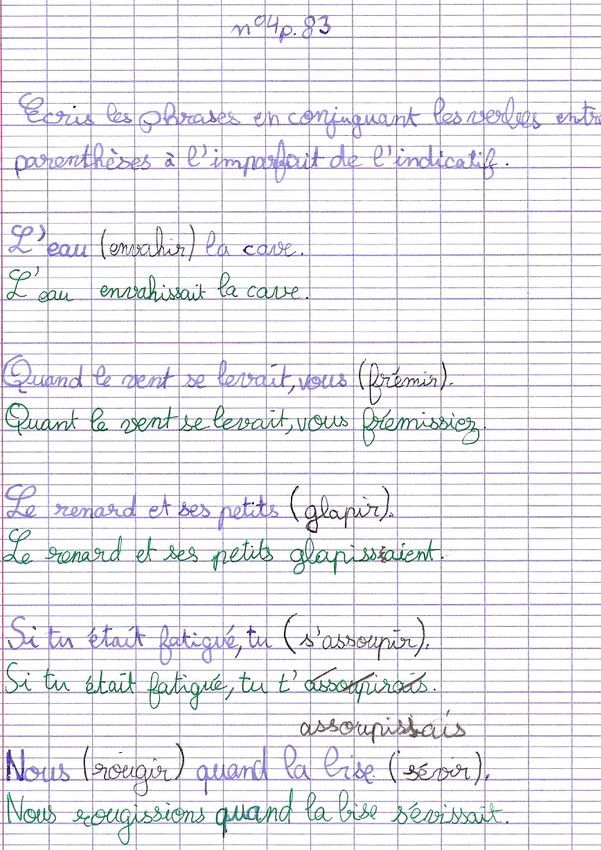 n°4p.83
Ecris les phrases en conjuguant les verbes entre
parenthèses à l'imparfait de l'indicatif.
L'eau (envahir) la cave.
L'eau envahissait la cave.
Quand le vent se levait, vous (frémir).
Quant le vent se levait, vous frémissiez.
Le renard et ses petits (glapir).
Le renard et ses petits glapissaient.
Si tu était fatigué, tu (s'assoupir).
Si tu était fatigué, tu t'assoupirais.
assoupissais
Nous (rougir) quand la bise (sévir).
Nous rougissions quand la bise sévissait.